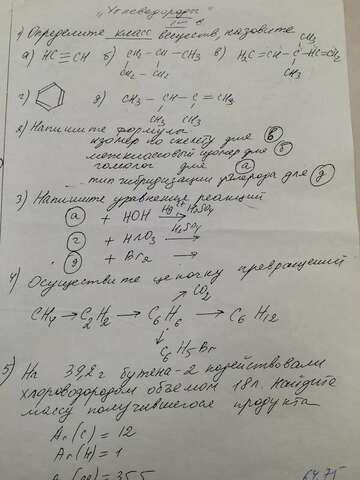 "Углеводороды"
1) Определите класс веществ, назовите
CH₃
а) HC≡CH б) CH₂-CH-CH₃ в) H₂C=CH-C-HC=CH₂
CH₂-CH₂ CH₃
г) д) CH₃-CH-C=CH₂
CH₃ CH₃
2) Напишите формулы
изомер по скелету для в
межклассовый изомер для б
гомолог для а
тип гибридизации углерода для д
3) Напишите уравнения реакций
а + HOH Hg²⁺ H₂SO₄
г + HNO₃ H₂SO₄ →
д + Br₂ →
4) Осуществите цепочку превращений
CO₂
CH₄ → C₂H₂ → C₆H₆ → C₆H₁₂
C₆H₅Br
5) На 39,2 г бутена-2 подействовали
хлороводородом объемом 18 л. Найдите
массу получившегося продукта
Ar(C) = 12
Ar(H) = 1
= 35,5 64,75